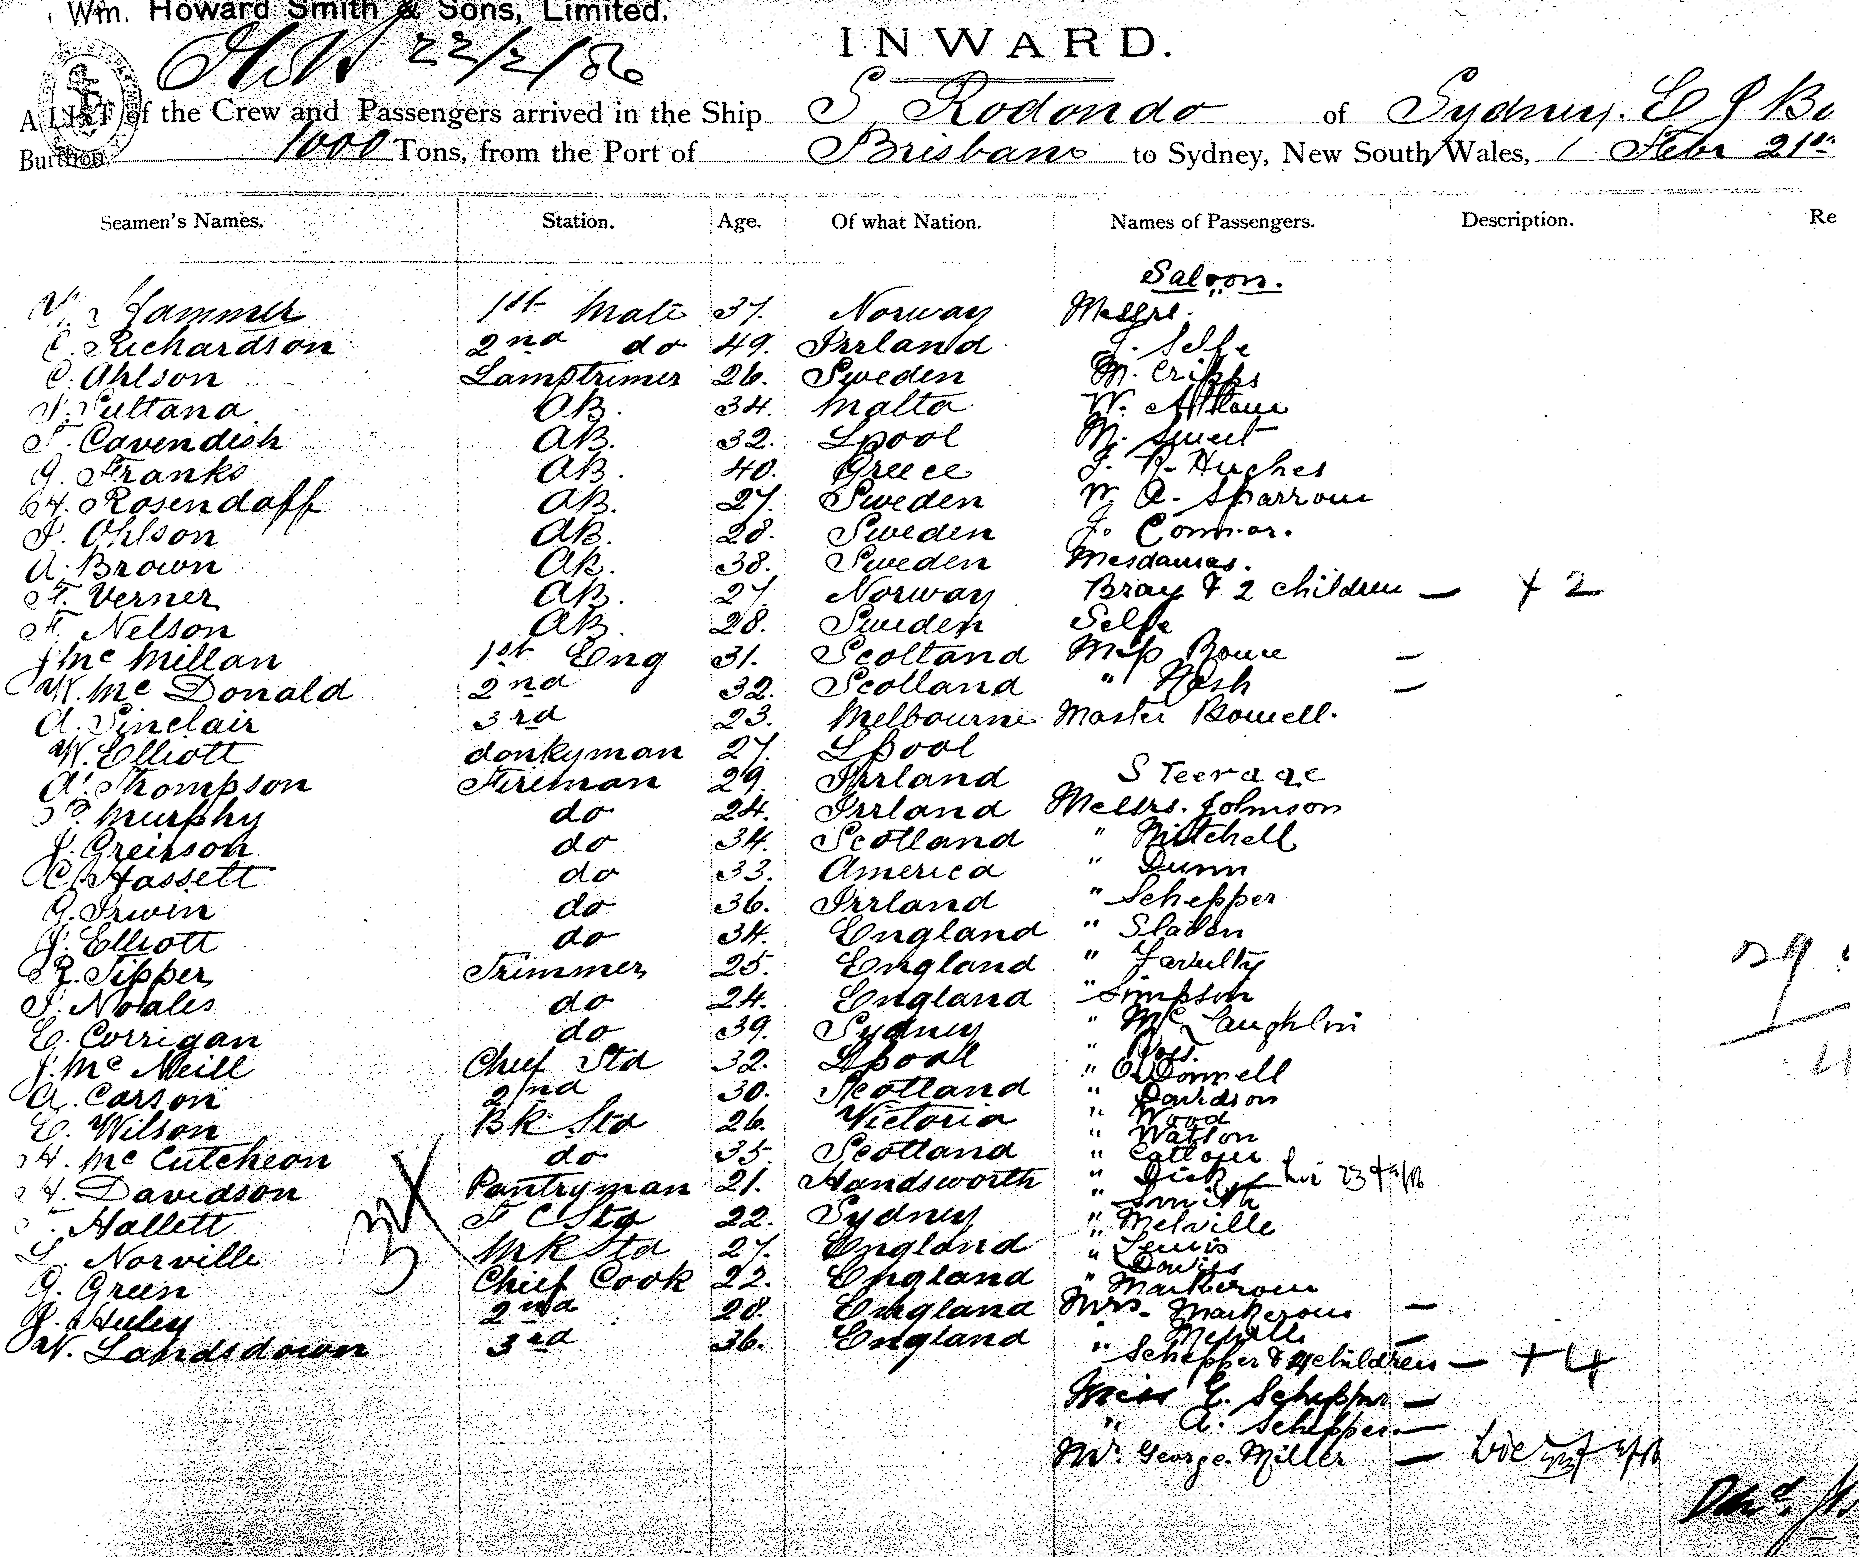 Wm. Howard Smith & Sons, Limited.
22/2/86
INWARD.
A LIST of the Crew and Passengers arrived in the Ship S. Rodondo of Sydney.
Burthen 1000 Tons, from the Port of Brisbane to Sydney, New South Wales, Febr 21st
Seamen's Names. Station. Age. Of what Nation. Names of Passengers. Description. Re
Saloon.
Hammer 1st Mate 37. Norway Messrs.
C. Richardson 2nd do 49. Irrland Selfe
C. Ahlson Lamptrimer 26. Sweden M. Cripps
Sultana AB. 34. Malta W.
T. Cavendish AB. 32. Lpool M. Sweet
G. Franks AB. 40. Greece J. R. Hughes
Rosendoff AB. 27. Sweden W. A. Sparrow
Ohlson AB. 28. Sweden J. Connor.
A. Brown AB. 38. Sweden Mesdames.
F. Verner AB. 27. Norway Bray & 2 children — + 2
F. Nelson AB. 28. Sweden Selfe
J Mc Millan 1st Eng 31. Scotland Miss Rowe —
W. Mc Donald 2nd 32. Scotland " Nash —
A. Sinclair 3rd 23. Melbourne Master Bowell.
W. Elliott donkyman 27. Lpool
A. Thompson Fireman 29. Irrland Steerage
P. Murphy do 24. Irrland Messrs. Johnson
J. Greirson do 34. Scotland " Mitchell
C. Hassett do 33. America " Dunn
G. Irwin do 36. Irrland " Schepper
J. Elliott do 34. England " Sladen
R. Tipper Trimmer 25. England "
Noales do 24. England " Simpson
E. Corrigan do 39. Sydney " McLaughlin
J. Mc Neill Chief Std 32. Lpool " Ross.
A. Carson 2nd 30. Scotland " O'Donnell
E. Wilson Bk Std 26. Victoria " Davidson
H. Mc Cutcheon do 35. Scotland " Wood
H. Davidson Pantryman 21. Handsworth " Watson
Hallett F C Std 22. Sydney "
L. Norville Mk Std 27. England " Dick
G. Green Chief Cook 22. England " Smith
J. Huley 2nd 28. England " Melville
W. Landsdown 3rd 36. England " Lewis
" Davies
" Markerow
Mrs. Markerow —
" Melville —
" Schepper & 4 children — + 4
Miss E. Schepper —
" A. Schepper —
Mr. George Miller —